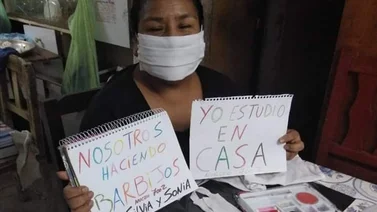 NOSOTROS
HACIENDO
BARBIJOS
SILVIA Y SONIA
YO ESTUDIO
EN
CASA